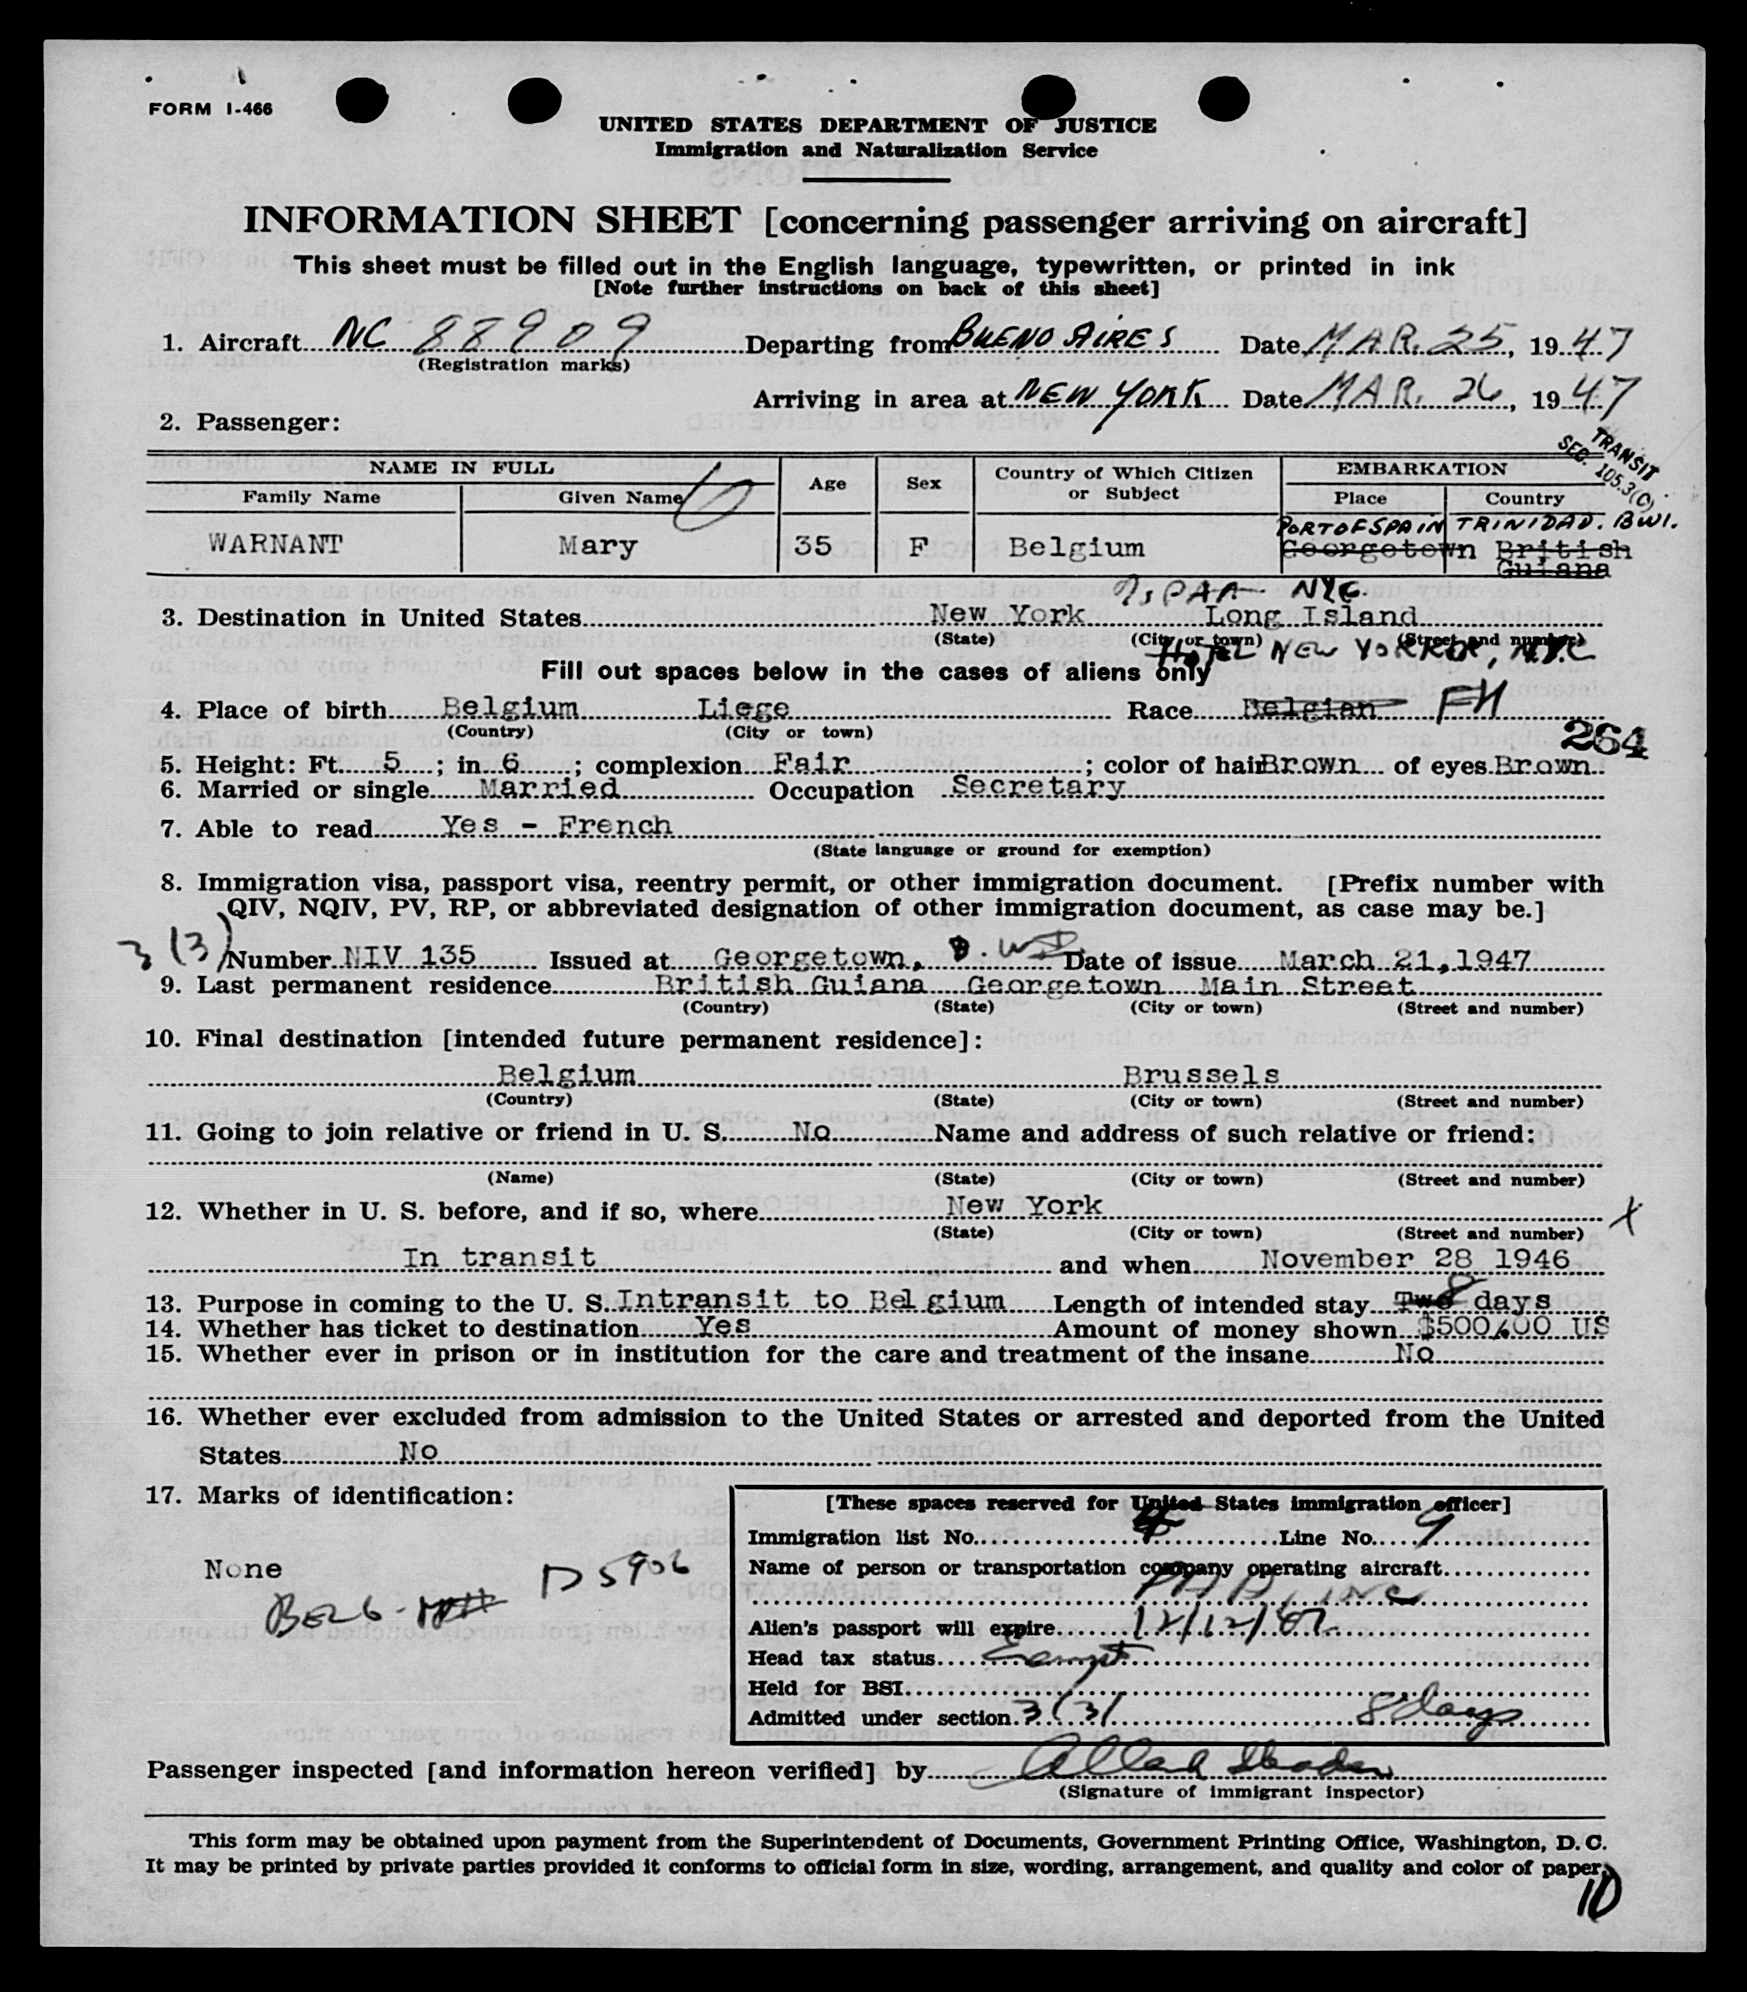 FORM I-466
UNITED STATES DEPARTMENT OF JUSTICE
Immigration and Naturalization Service
INFORMATION SHEET [concerning passenger arriving on aircraft]
This sheet must be filled out in the English language, typewritten, or printed in ink
[Note further instructions on back of this sheet]
1. Aircraft NC 88909 Departing from BUENO AIRES Date MAR. 25, 1947
(Registration marks)
Arriving in area at NEW YORK Date MAR. 26, 1947
2. Passenger:
TRANSIT
SEC. 105.3(C)
NAME IN FULL Age Sex Country of Which Citizen or Subject EMBARKATION
Family Name Given Name Place Country
PORT OF SPAIN TRINIDAD. BWI.
WARNANT Mary 35 F Belgium Georgetown British
Guiana
PAA NYC.
3. Destination in United States New York Long Island
(State) (City or town) (Street and number)
HOTEL NEW YORKER, NYC
Fill out spaces below in the cases of aliens only
4. Place of birth Belgium Liege Race Belgian FH
(Country) (City or town)
264
5. Height: Ft. 5 ; in 6 ; complexion Fair ; color of hair Brown of eyes Brown
6. Married or single Married Occupation Secretary
7. Able to read Yes - French
(State language or ground for exemption)
8. Immigration visa, passport visa, reentry permit, or other immigration document. [Prefix number with
QIV, NQIV, PV, RP, or abbreviated designation of other immigration document, as case may be.]
3(3) Number NIV 135 Issued at Georgetown, B.WI. Date of issue March 21, 1947
9. Last permanent residence British Guiana Georgetown Main Street
(Country) (State) (City or town) (Street and number)
10. Final destination [intended future permanent residence]:
Belgium Brussels
(Country) (State) (City or town) (Street and number)
11. Going to join relative or friend in U. S. No Name and address of such relative or friend:
(Name) (State) (City or town) (Street and number)
12. Whether in U. S. before, and if so, where New York X
(State) (City or town) (Street and number)
In transit and when November 28 1946
13. Purpose in coming to the U. S. Intransit to Belgium Length of intended stay Two 8 days
14. Whether has ticket to destination Yes Amount of money shown $500.00 US
15. Whether ever in prison or in institution for the care and treatment of the insane No
16. Whether ever excluded from admission to the United States or arrested and deported from the United
States No
17. Marks of identification:
None
BELG- D 5906
[These spaces reserved for United States immigration officer]
Immigration list No. 4 Line No. 9
Name of person or transportation company operating aircraft
INC
Alien's passport will expire 12/12/47
Head tax status Exempt
Held for BSI
Admitted under section 3(3) 8 days
Passenger inspected [and information hereon verified] by
(Signature of immigrant inspector)
This form may be obtained upon payment from the Superintendent of Documents, Government Printing Office, Washington, D. C.
It may be printed by private parties provided it conforms to official form in size, wording, arrangement, and quality and color of paper.
10